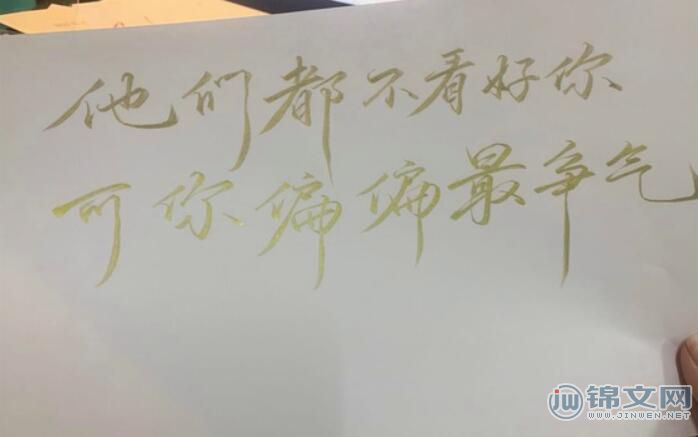 他们都不看好你
可你偏偏最争气
jw 锦文网
WWW.JINWEN.NET